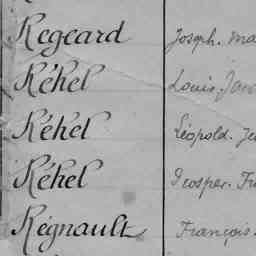 Regeard Joseph. Ma
Réhel Louis. Jan
Réhel Léopold. Je
Réhel Prosper. Fr
Régnault François.